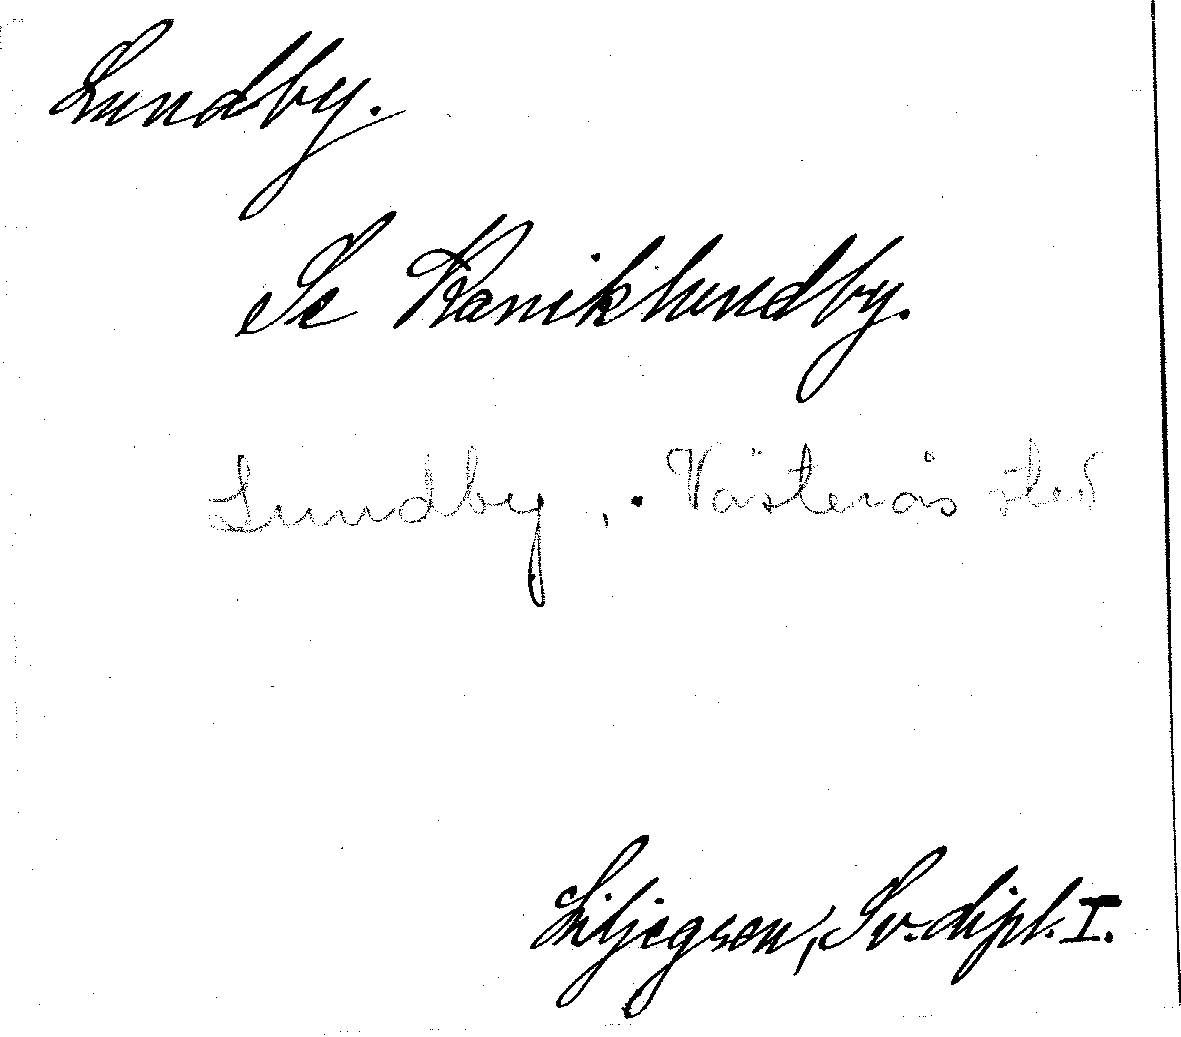 Lundby.
Se Kaniklundby.
Lundby, Västerås sted
Liljegren, Sv. dipl. I.